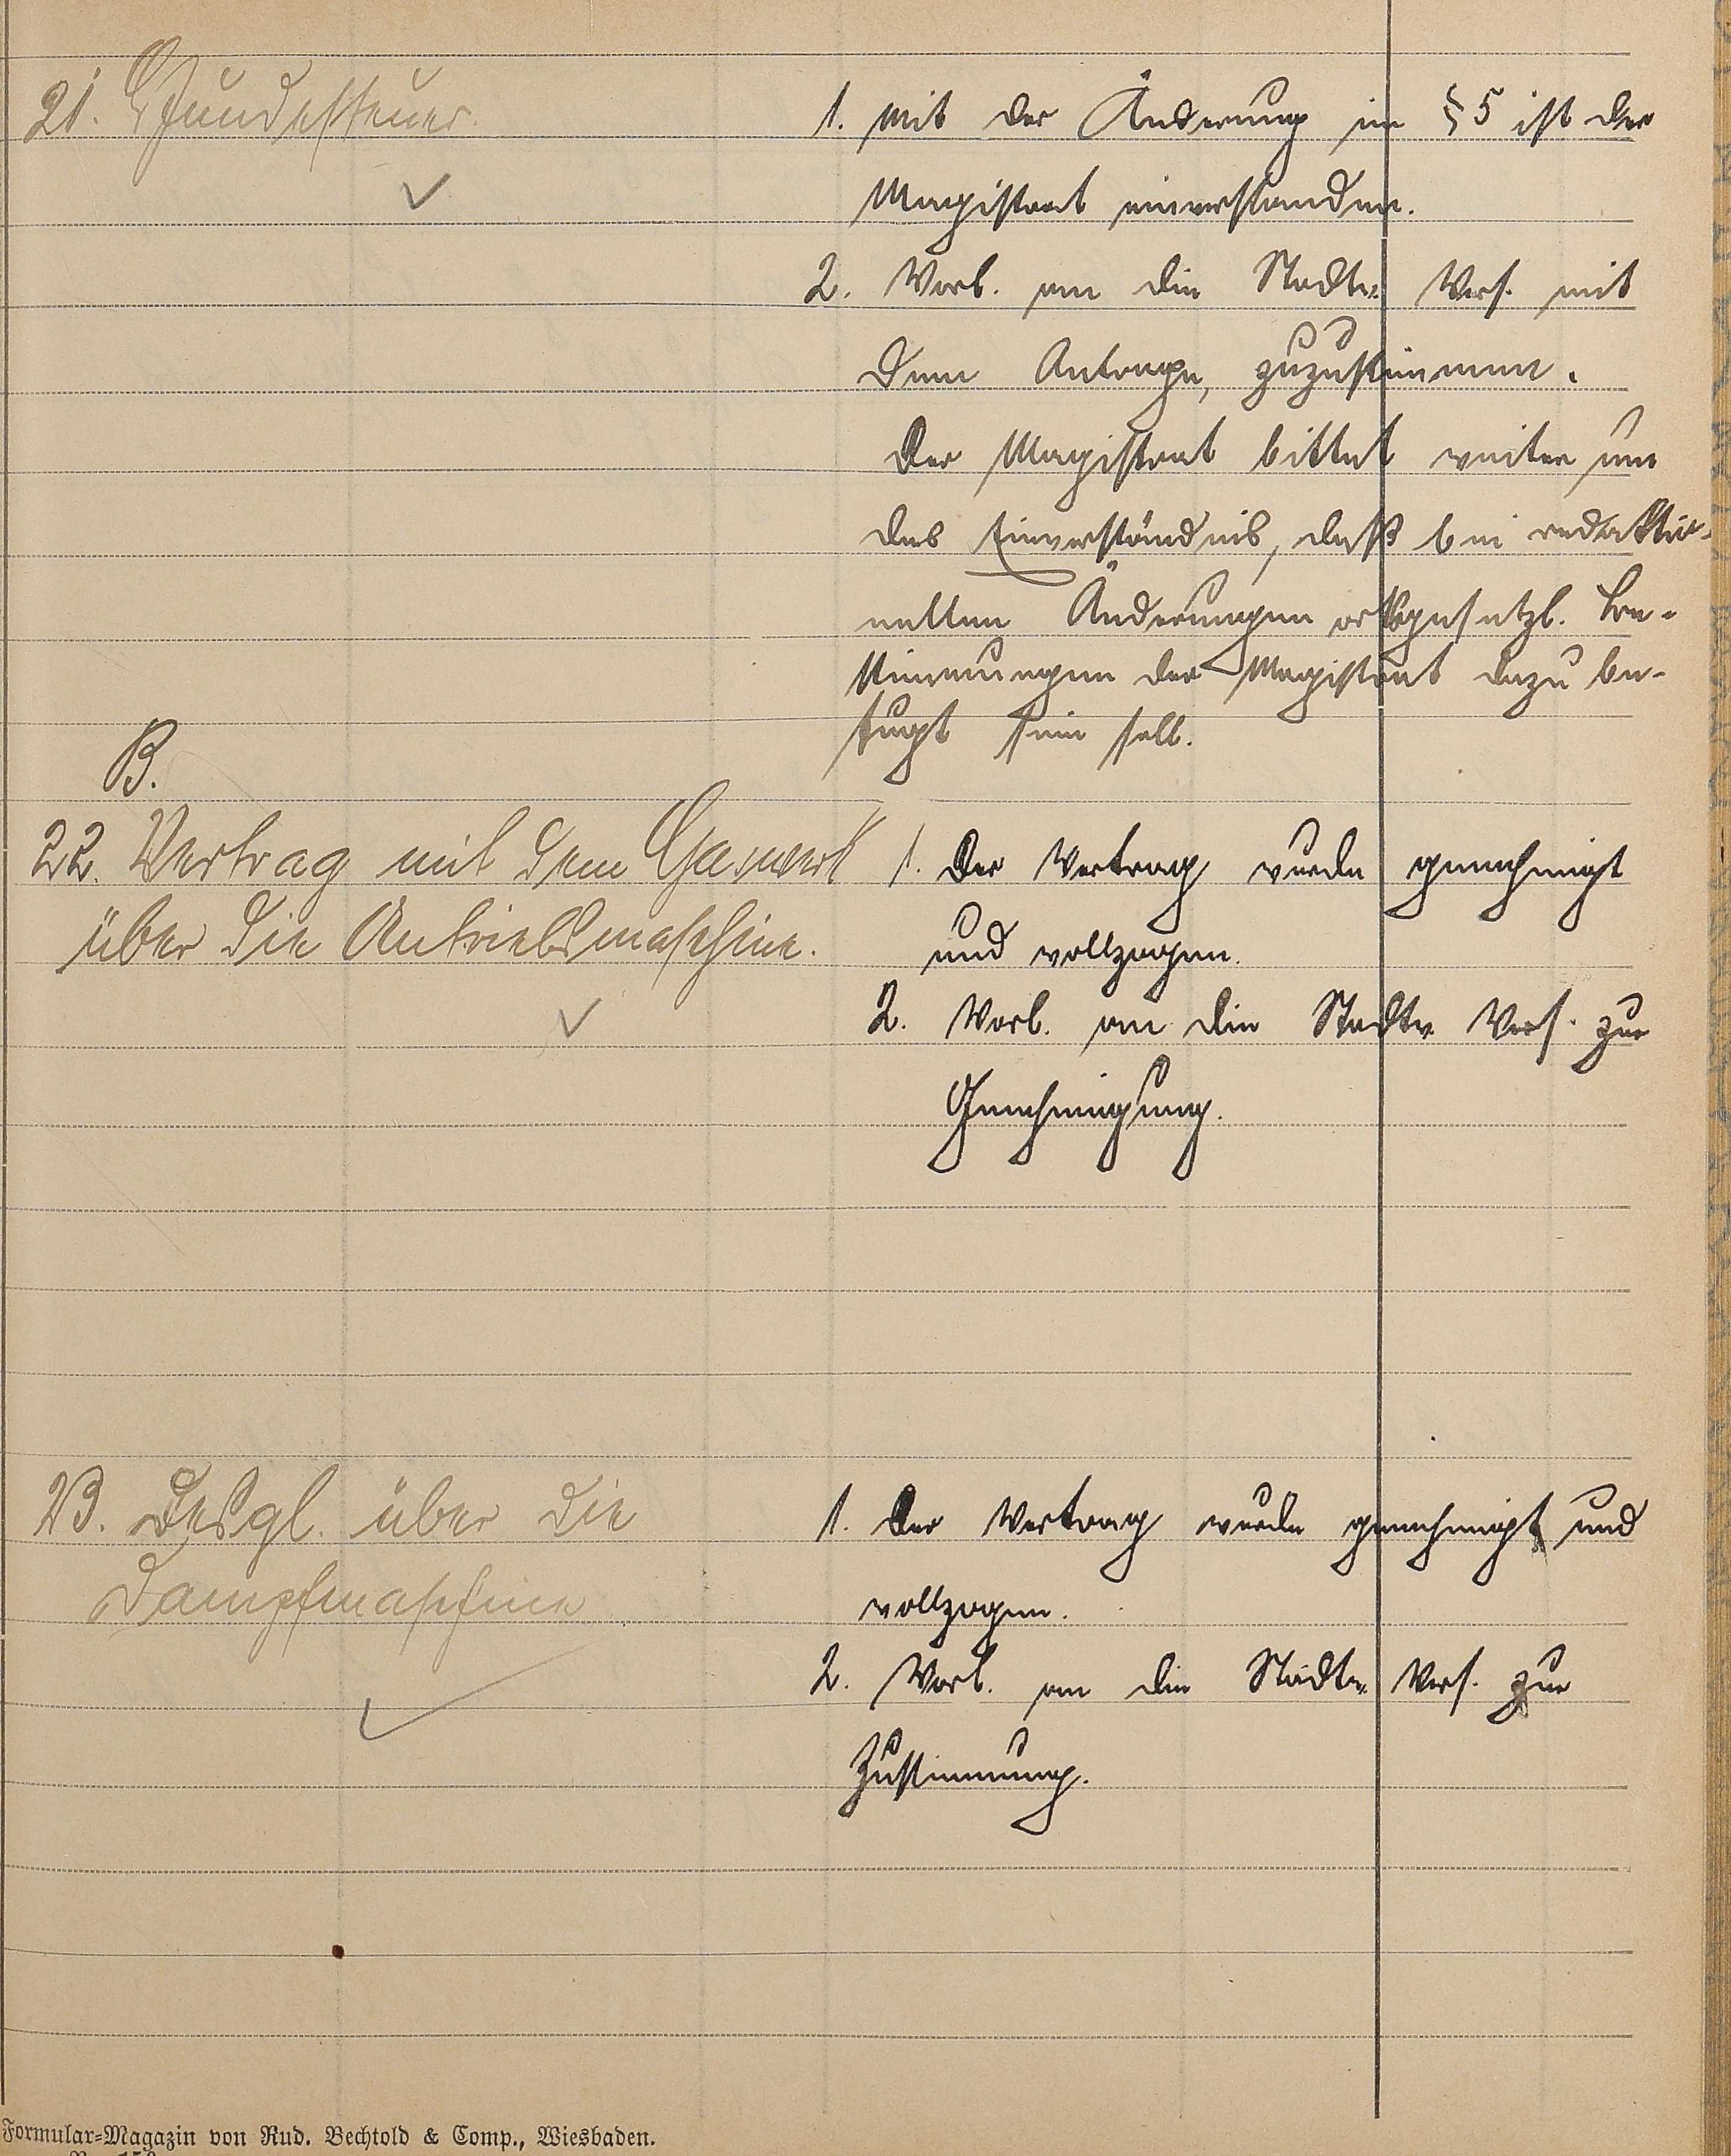 21. Hundesteuer.
1. Mit der Änderung im § 5 ist der
Magistrat einverstanden.
2. Vorl. an die Stadtv. Vers. mit
dem Antrage, zuzustimmen.
Der Magistrat bittet weiter um
das Einverständnis, daß bei redaktio-
nellen Änderungen ortsgesetzl. Be-
stimmungen der Magistrat dazu be-
fugt sein soll.
B.
22. Vertrag mit dem Gaswerk
über die Antriebsmaschine.
1. Der Vertrag wurde genehmigt
und vollzogen.
2. Vorl. an die Stadtv. Vers. zur
Genehmigung.
23. Desgl. über die
Dampfmaschine
1. Der Vertrag wurde genehmigt und
vollzogen.
2. Vorl. an die Stadtv. Vers. zur
Zustimmung.
Formular-Magazin von Rud. Bechtold & Comp., Wiesbaden.